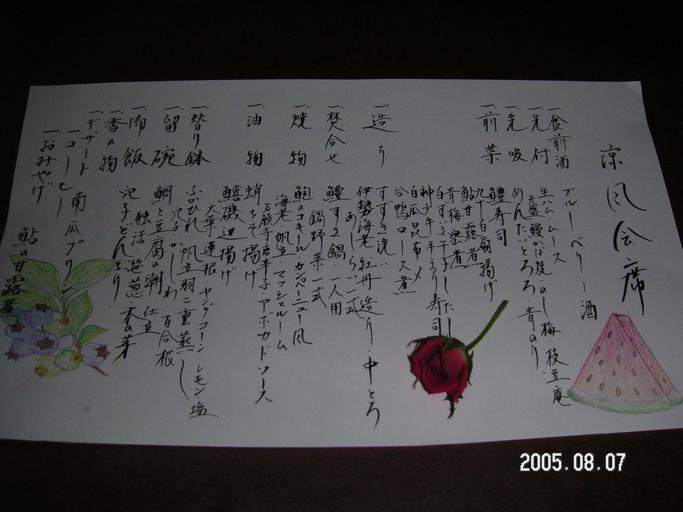 涼風会席
一、食前酒 ブルーベリー酒
一、先付 生ハムムース
大盛鰻かば焼 のし梅 枝豆庵
一、先吸 めんたいとろろ 青のり
一、前菜 鱧寿司
九十白桐揚げ
鮎甘露煮
青梅蜜煮
白ずき干し だし
神戸牛手まり寿司
白瓜昆布〆
合鴨ロース煮
一、造り すずき洗い
伊勢海老 牡丹造り 中とろ
あしらい一式
一、焚合せ 鱧すき鍋 一人用
鍋野菜一式
一、焼物 鮑のコキール カンパニュー風
海老 帆立 マッシュルーム
アボカドソース
一、油物 蛸ちそ揚げ
鱧磯辺揚げ
大葉 連根 ヤングコーン レモン 塩
一、替り鉢 ふかひれ 帆立 羽二重蒸し
穴子 かしわ 百合根
一、留碗 鯛と豆腐の潮仕立
独活 笹葱 木の芽
一、御飯 穴子どんぶり
一、香の物
一、デザート 南瓜プリン
一、コーヒー
一、おみやげ 鮎の甘露煮
2005.08.07